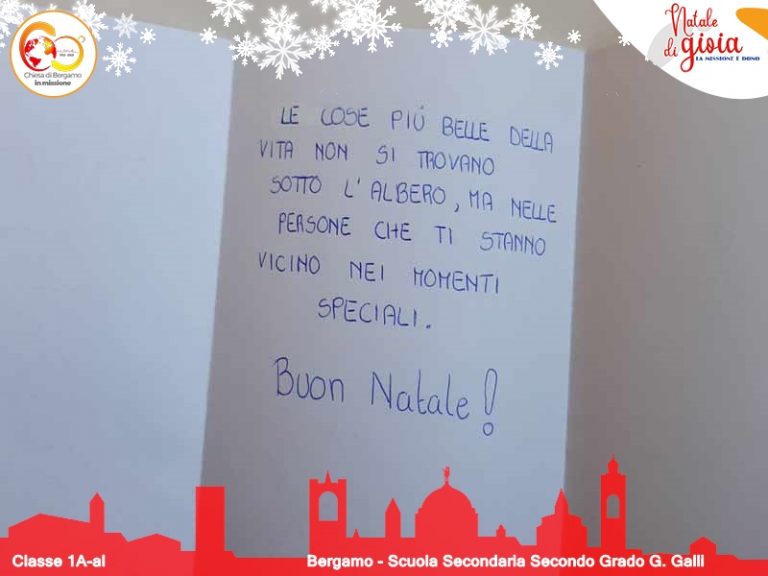 Chiesa di Bergamo
in missione
Natale
di gioia
LA MISSIONE È DONO
LE COSE PIÚ BELLE DELLA
VITA NON SI TROVANO
SOTTO L'ALBERO, MA NELLE
PERSONE CHE TI STANNO
VICINO NEI MOMENTI
SPECIALI.
Buon Natale!
Classe 1A-al
Bergamo - Scuola Secondaria Secondo Grado G. Galli